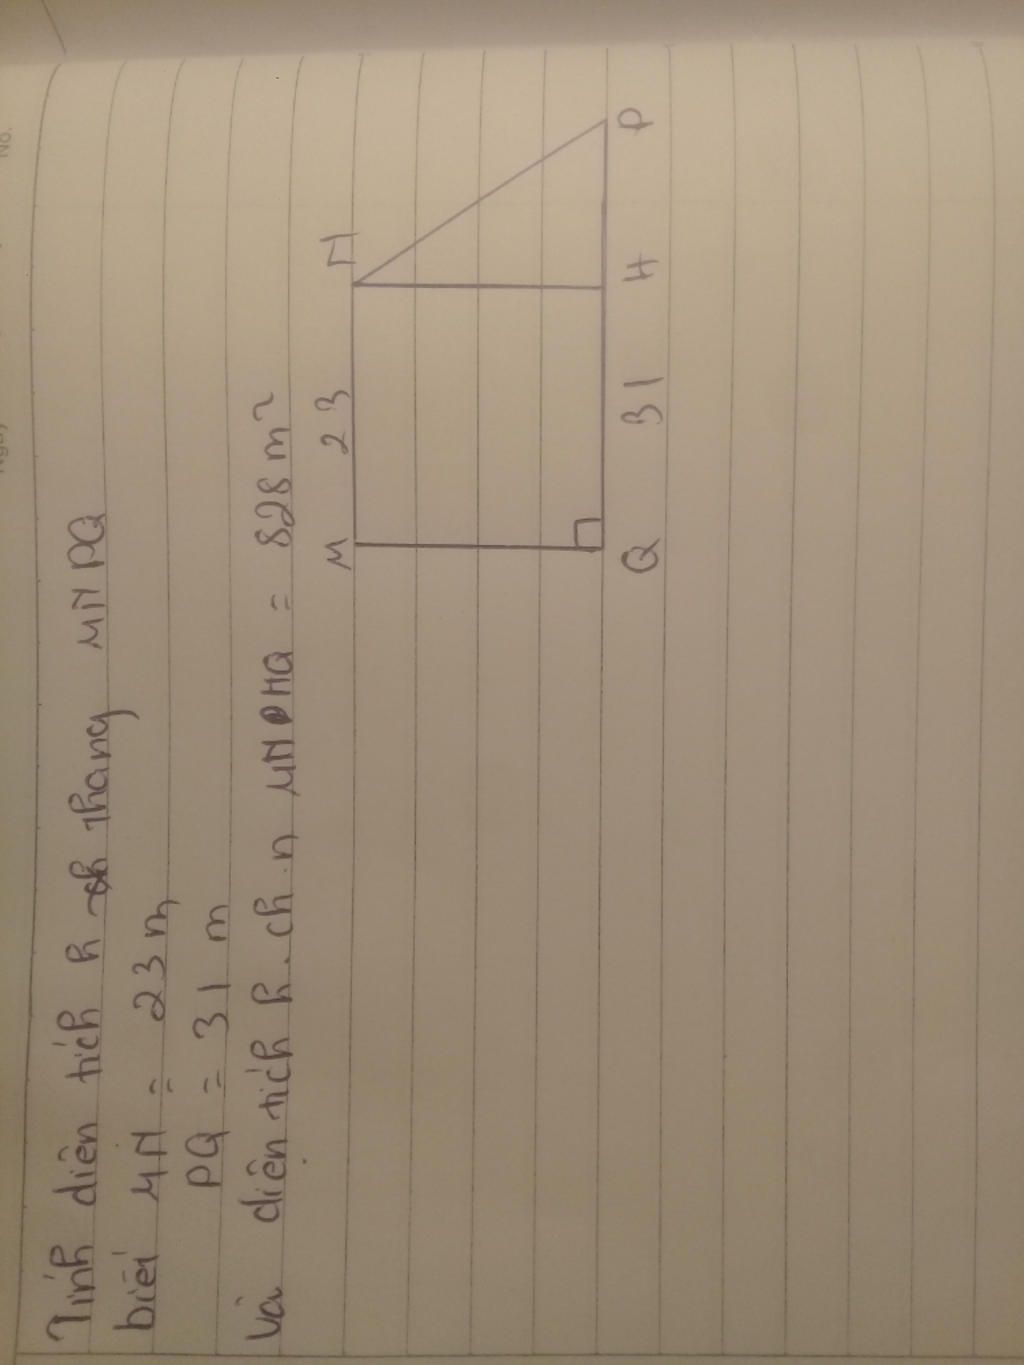 Tính diện tích h thang MNPQ
biết MN = 23 m
PQ = 31 m
Và diện tích h.ch.n MNHQ = 828 m²
M 23 N
Q 31 H P
No.